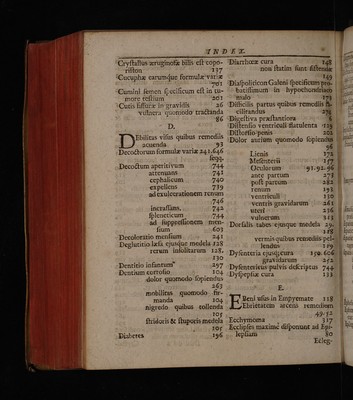 INDEX.
Crystallus æruginosæ bilis est copo-
137
Cucuphæ earumque formulæ variæ
703
Cumini semen specificum est in tu-
more testium 201
Cutis fissuræ in gravidis 26
vulnera quomodo tractanda
86
D.
Debilitas visus quibus remediis
acuenda 93
Decoctorum formulæ variæ 241.646
seqq.
Decoctum aperitivum 744
attenuans 741
cephalicum 740
expellens 739
ad exulcerationem renum
746
incrassans. 742
spleneticum 744
ad suppressionem men-
sium 603
Decoloratio mensium 241
Deglutitio læsa ejusque medela 128
rerum insolitarum 128.
130
Dentitio infantum 297
Dentium corrosio 104
dolor quomodo sopiendus
263
mobilitas quomodo fir-
manda 104
nigredo quibus tollenda
105
stridoris & stuporis medela
105
Diabetes 196
Diarrhœæ cura 148
non statim sunt sistendæ
149
Diaspoliticon Galeni specificum pro-
batissimum in hypochondriaco
malo 171
Difficilis partus quibus remediis fa-
cilitandus
Digestiva præstantiora 8
Distensio ventriculi flatulenta 133
Distorsio penis 202
Dolor aurium quomodo sopiendus
96
Lienis
Mesenterii 157
Oculorum 91.92.96
ante partum 278
post partum 282
renum 192
ventriculi 130
ventris gravidarum 261
uteri 236
vulnerum 213
Dorsalis tabes ejusque medela 29.
218
vermis quibus remediis pel-
lendus 319
Dysenteria ejusque cura 150.606
gravidarum 252
Dysentericus pulvis descriptus 744
Dyspepsiæ cura 132
E.
Ebeni usus in Empyemate 118
Ebrietatem arcens remedium
49.52
Ecchymoma 317
Ecclipses maximè disponunt ad Epi-
lepsiam 80
Ecleg-